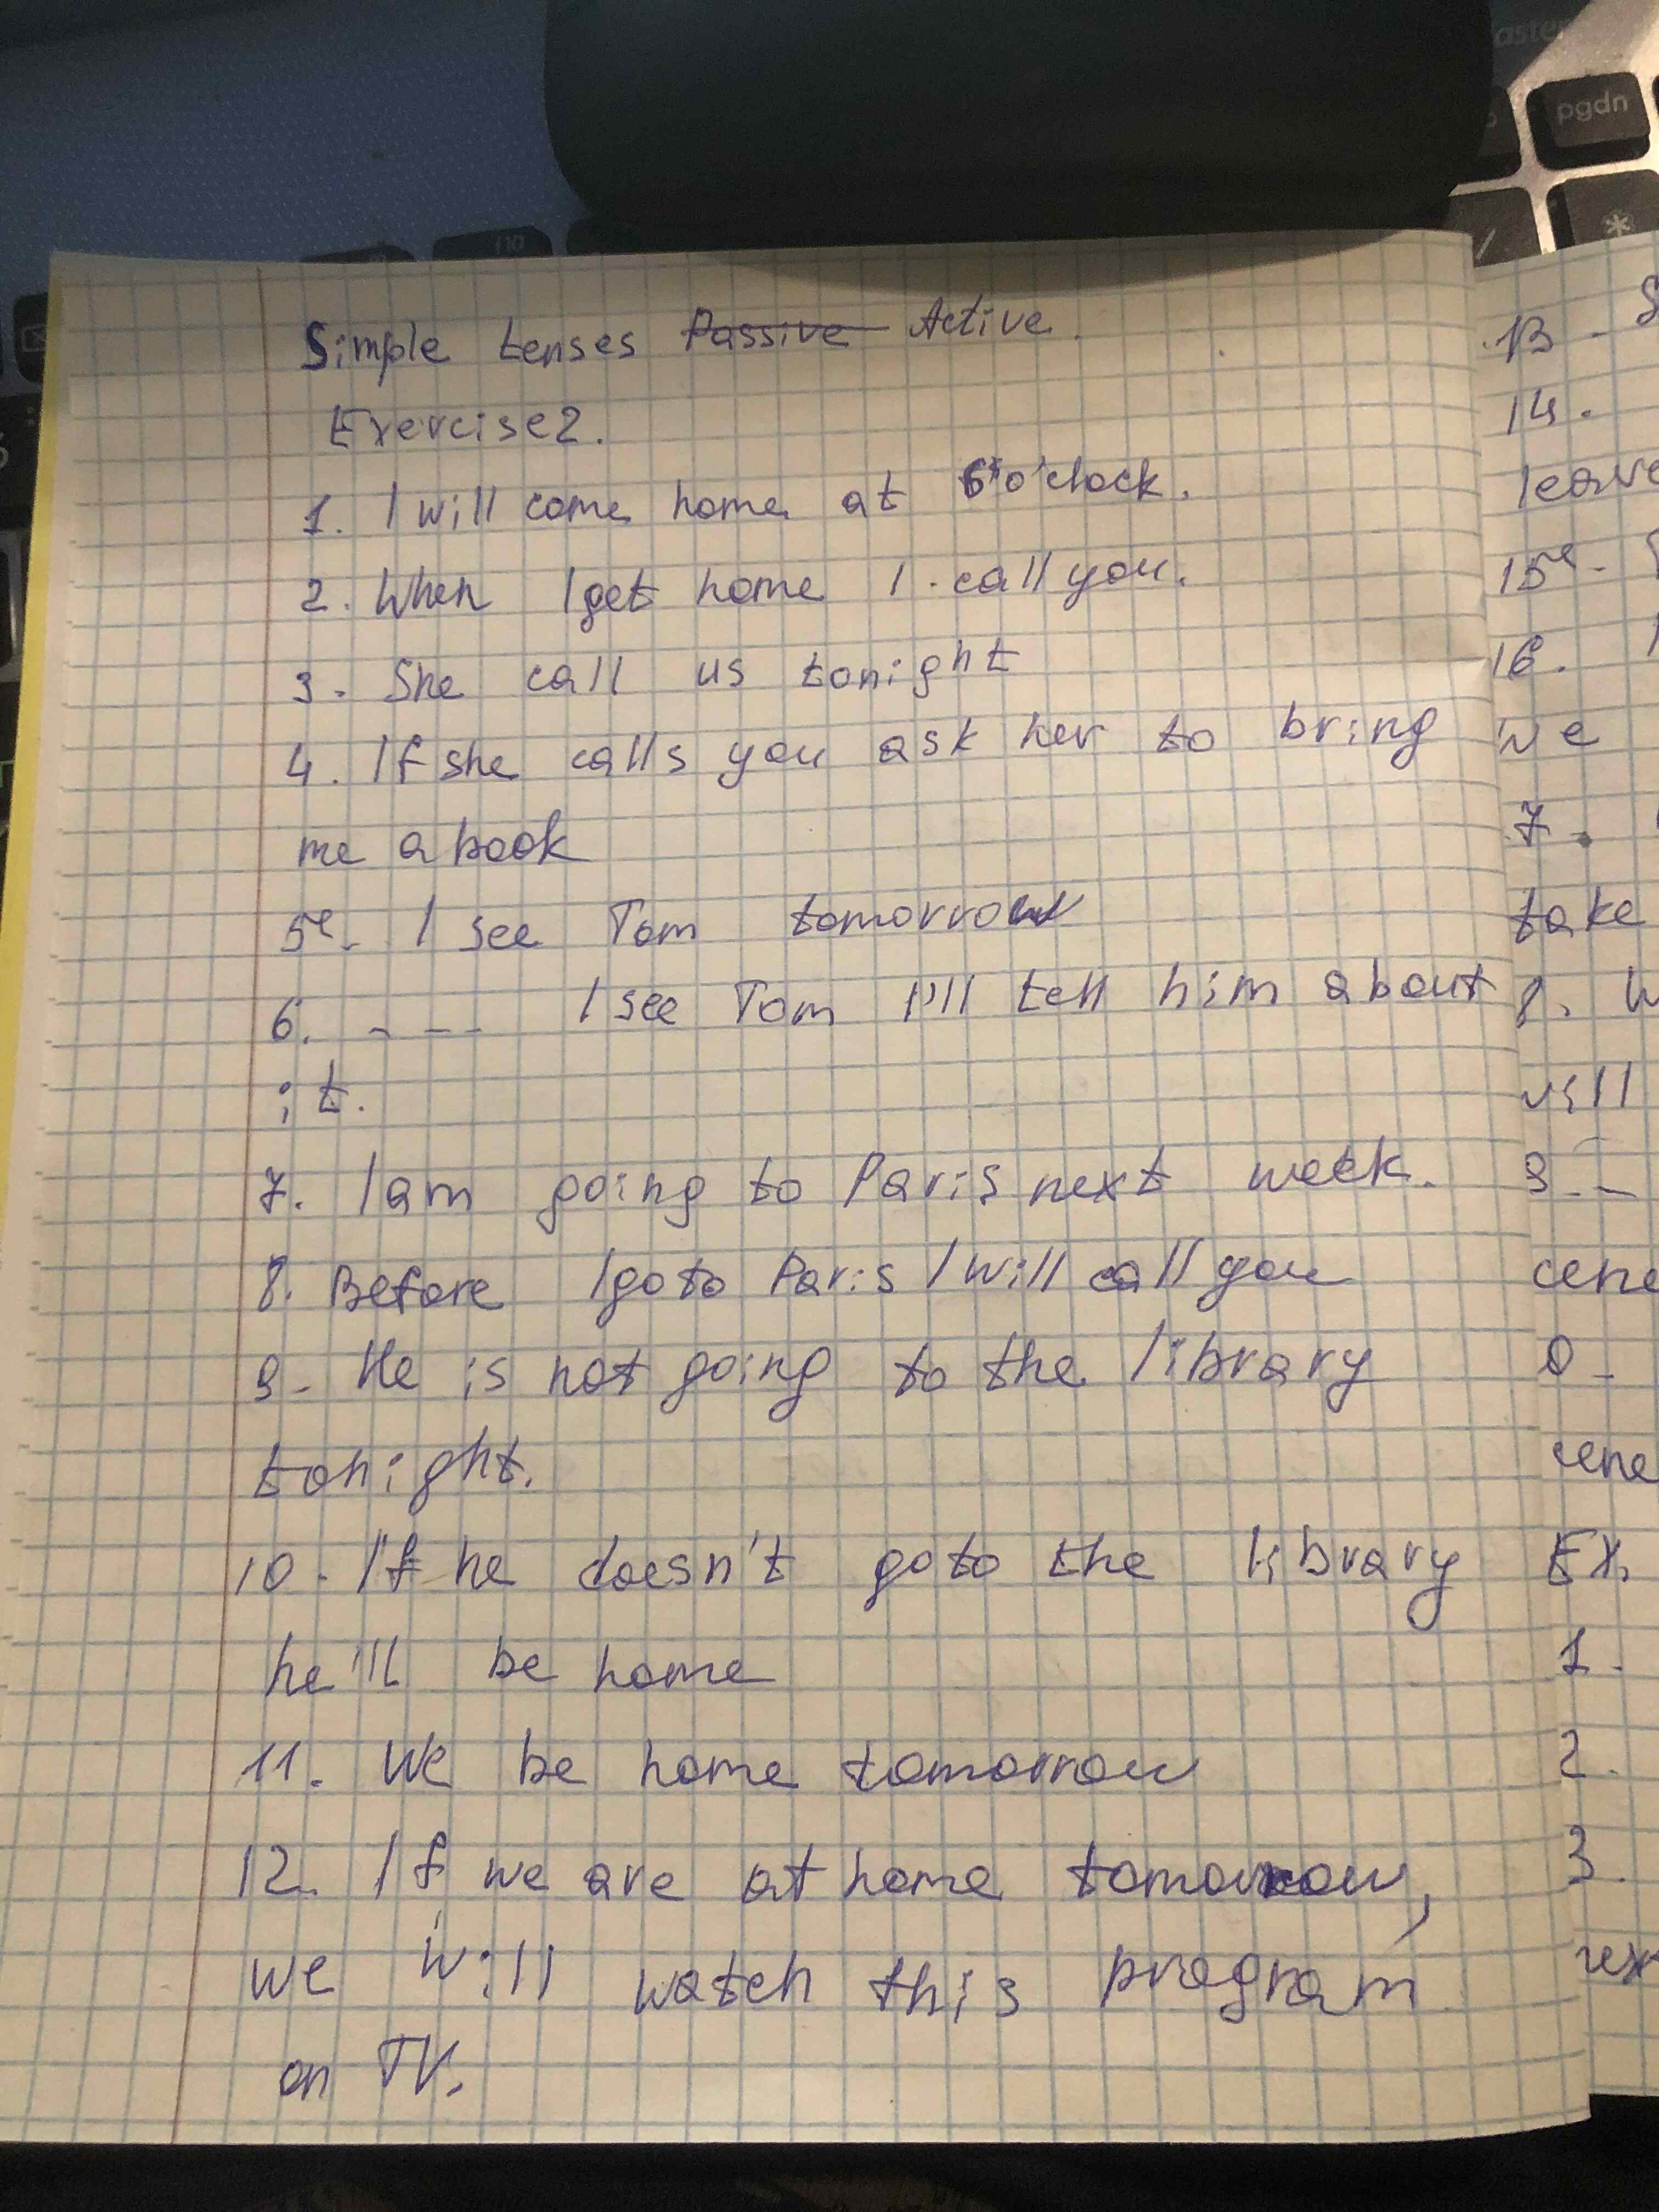 pgdn
/
*
f10
Simple tenses Passive Active.
Exercise 2.
1. I will come home at 6 o'clock.
2. When I get home I call you.
3. She call us tonight
4. If she calls you ask her to bring
me a book
5. I see Tom tomorrow
6. ---- I see Tom I'll tell him about
it.
7. I am going to Paris next week.
8. Before I go to Paris I will call you
9. He is not going to the library
tonight.
10. If he doesn't go to the library
he'll be home
11. We be home tomorrow
12. If we are at home tomorrow,
we will watch this program
on TV.
13 - S
14.
leave
15.
16.
we
7.
take
8. W
will
9. -
0 -
Ex.
1.
2.
3.